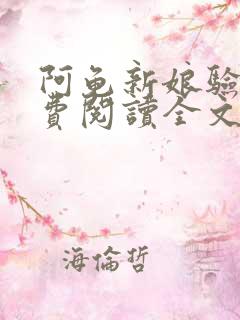 阿兔新娘驗
費閱讀全文
海倫哲